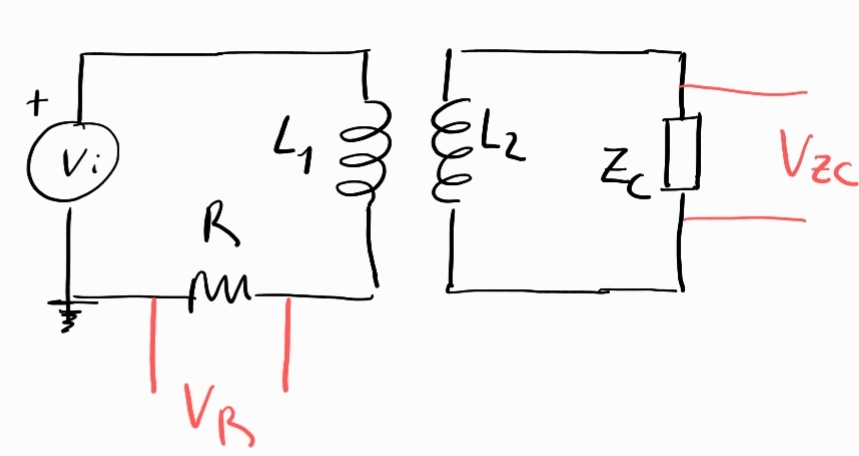 +
Vi
L1
L2
ZC
VZC
R
VR